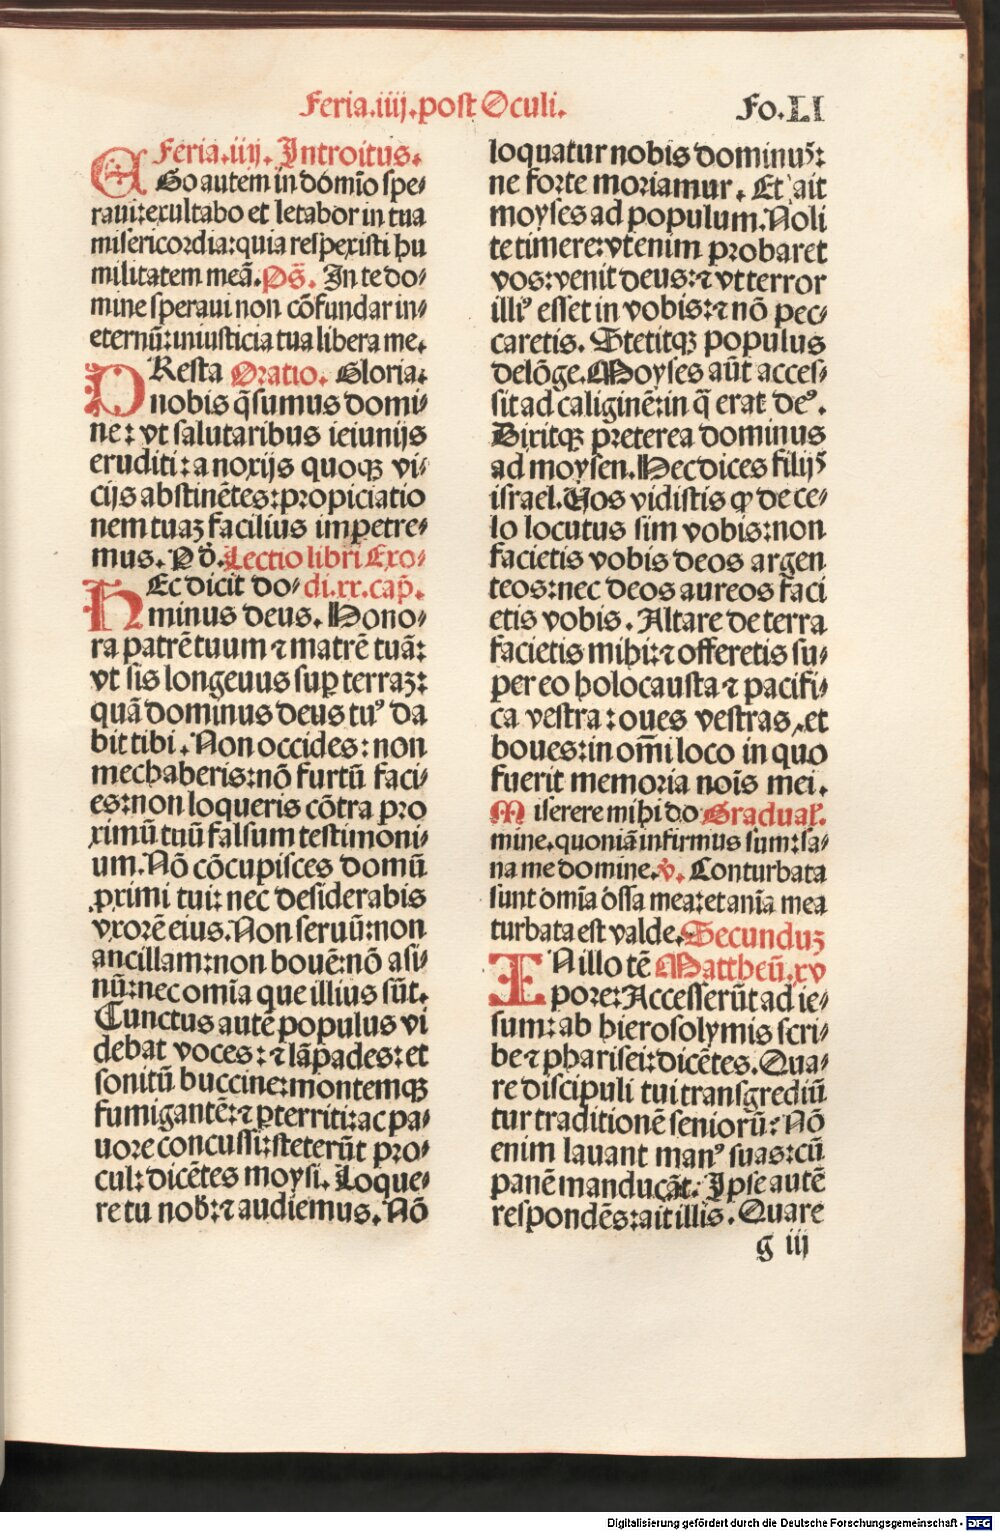 Feria.iiij.post Oculi.
Fo.LI
Feria.iiij. Introitus.
EGo autem in domīo spe⸗
raui:exultabo et letabor in tua
misericordia:quia respexisti hu
militatem meā. Ps̄. In te do⸗
mine speraui non cōfundar in⸗
eternū:iniusticia tua libera me.
PResta Oratio. Gloria.
nobis q̄sumus domi⸗
ne: vt salutaribus ieiunijs
eruditi: a noxijs quoqꝫ vi⸗
cijs abstinētes:propiciatio
nem tuaꝫ facilius impetre⸗
mus. P dn̄. Lectio libri Exo⸗
HEc dicit do⸗ di.xx.cap̄.
minus deus. Hono⸗
ra patrē tuum ⁊ matrē tuā:
vt sis longeuus suꝑ terraꝫ:
quā dominus deus tuꝰ da
bit tibi. Non occides: non
mechaberis:nō furtū faci⸗
es:non loqueris cōtra pro
ximū tuū falsum testimoni⸗
um. Nō cōcupisces domū
ꝓximi tui: nec desiderabis
vxorē eius. Non seruū:non
ancillam:non bouē:nō asi⸗
nū:nec omīa que illius sūt.
Cunctus autē populus vi
debat voces: ⁊ lāpades: et
sonitū buccine:montemqꝫ
fumigantē: ⁊ ꝑterriti:ac pa⸗
uore concussi:steterūt pro⸗
cul: dicētes moysi. Loque⸗
re tu nob̄: ⁊ audiemus. Nō
loquatur nobis dominuꝰ:
ne forte moriamur. Et ait
moyses ad populum. Noli
te timere: vt enim probaret
vos:venit deus: ⁊ vt terror
illiꝰ esset in vobis: ⁊ nō pec⸗
caretis. Stetitqꝫ populus
delōge. Moyses aūt acces⸗
sit ad caliginē:in q̄ erat deꝰ.
Dixitqꝫ preterea dominus
ad moysen. Hec dices filijs
israel. Vos vidistis ꝙ de ce⸗
lo locutus sim vobis:non
facietis vobis deos argen
teos:nec deos aureos faci
etis vobis. Altare de terra
facietis mihi: ⁊ offeretis su⸗
per eo holocausta ⁊ pacifi⸗
ca vestra: oues vestras, et
boues:in om̄i loco in quo
fuerit memoria nois̄ mei.
Miserere mihi do Gradual̄.
mine.quoniā infirmus sum:sa⸗
na me domine. v̄. Conturbata
sunt omīa ossa mea:et anīa mea
turbata est valde. Secunduꝫ
IN illo tē Mattheū.xv
pore: Accesserūt ad ie⸗
sum: ab hierosolymis scri⸗
be ⁊ pharisei:dicētes. Qua⸗
re discipuli tui transgrediū
tur traditionē seniorū: Nō
enim lauant manꝰ suas:cū
panē manducāt. Ipse autē
respondēs:ait illis. Quare
g iij
Digitalisierung gefördert durch die Deutsche Forschungsgemeinschaft - DFG